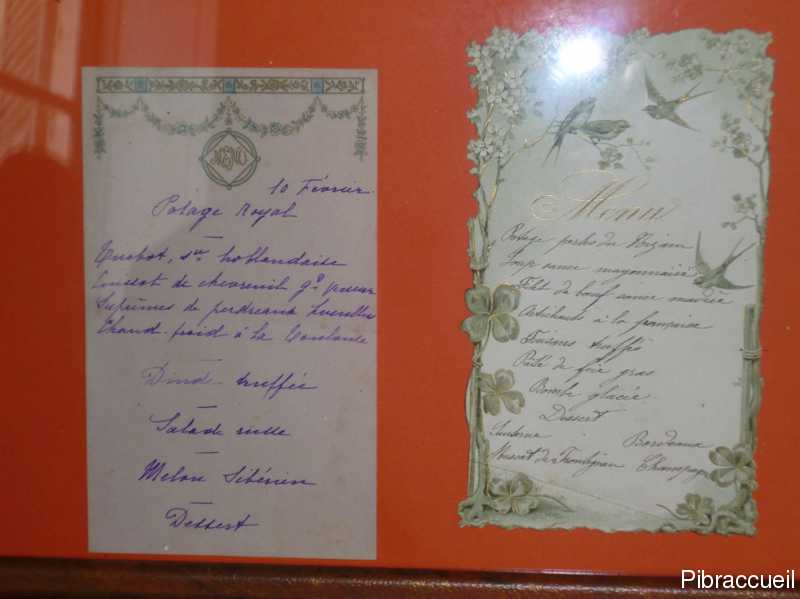 MENU
10 Février.
Potage Royal
Turbot, sce hollandaise
Cuissot de chevreuil gd veneur
Suprêmes de perdreaux Lucullus
Chaud-froid à la
Dinde truffée
Salade russe
Melon Sibérien
Dessert
Menu
Potage perles du Nizam
sauce mayonnaise
Filet de bœuf sauce madère
Artichauts à la française
Faisans truffés
Pâté de foie gras
Bombe glacée
Dessert
Sauterne Bordeaux
Muscat de Frontignan Champagne
Pibraccueil